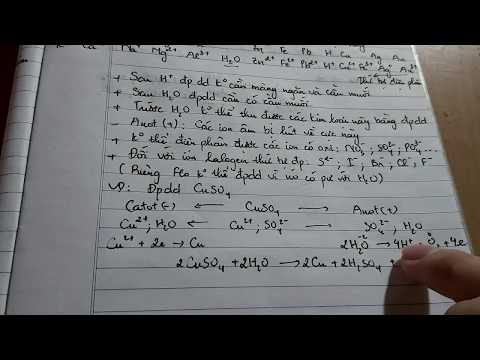 Na⁺ Mg²⁺ Al³⁺ H₂O Zn²⁺ Fe²⁺ Pb²⁺ H⁺ Cu²⁺ Fe³⁺ Ag⁺ Au³⁺
+ Sau H⁺ đp dd k° cần màng ngăn và cầu muối
+ Sau H₂O đpdd cần có cầu muối
+ Trước H₂O k° thể thu được các kim loại này bằng đpdd
- Anot (+): Các ion âm bị hút về cực này
+ k° thể điện phân được các ion có oxi: NO₃⁻, SO₄²⁻, PO₄³⁻...
+ Đối với ion halogen thứ tự đp: S²⁻, I⁻, Br⁻, Cl⁻, F⁻
( Riêng Flo k° thể đpdd vì nó có pư với H₂O)
VD: Đpdd CuSO₄
Catot (-) ← CuSO₄ → Anot (+)
Cu²⁺; H₂O ← Cu²⁺; SO₄²⁻ → SO₄²⁻; H₂O
Cu²⁺ + 2e → Cu 2H₂O⁻² → 4H⁺ + O₂⁰ + 4e
2CuSO₄ + 2H₂O → 2Cu + 2H₂SO₄ +